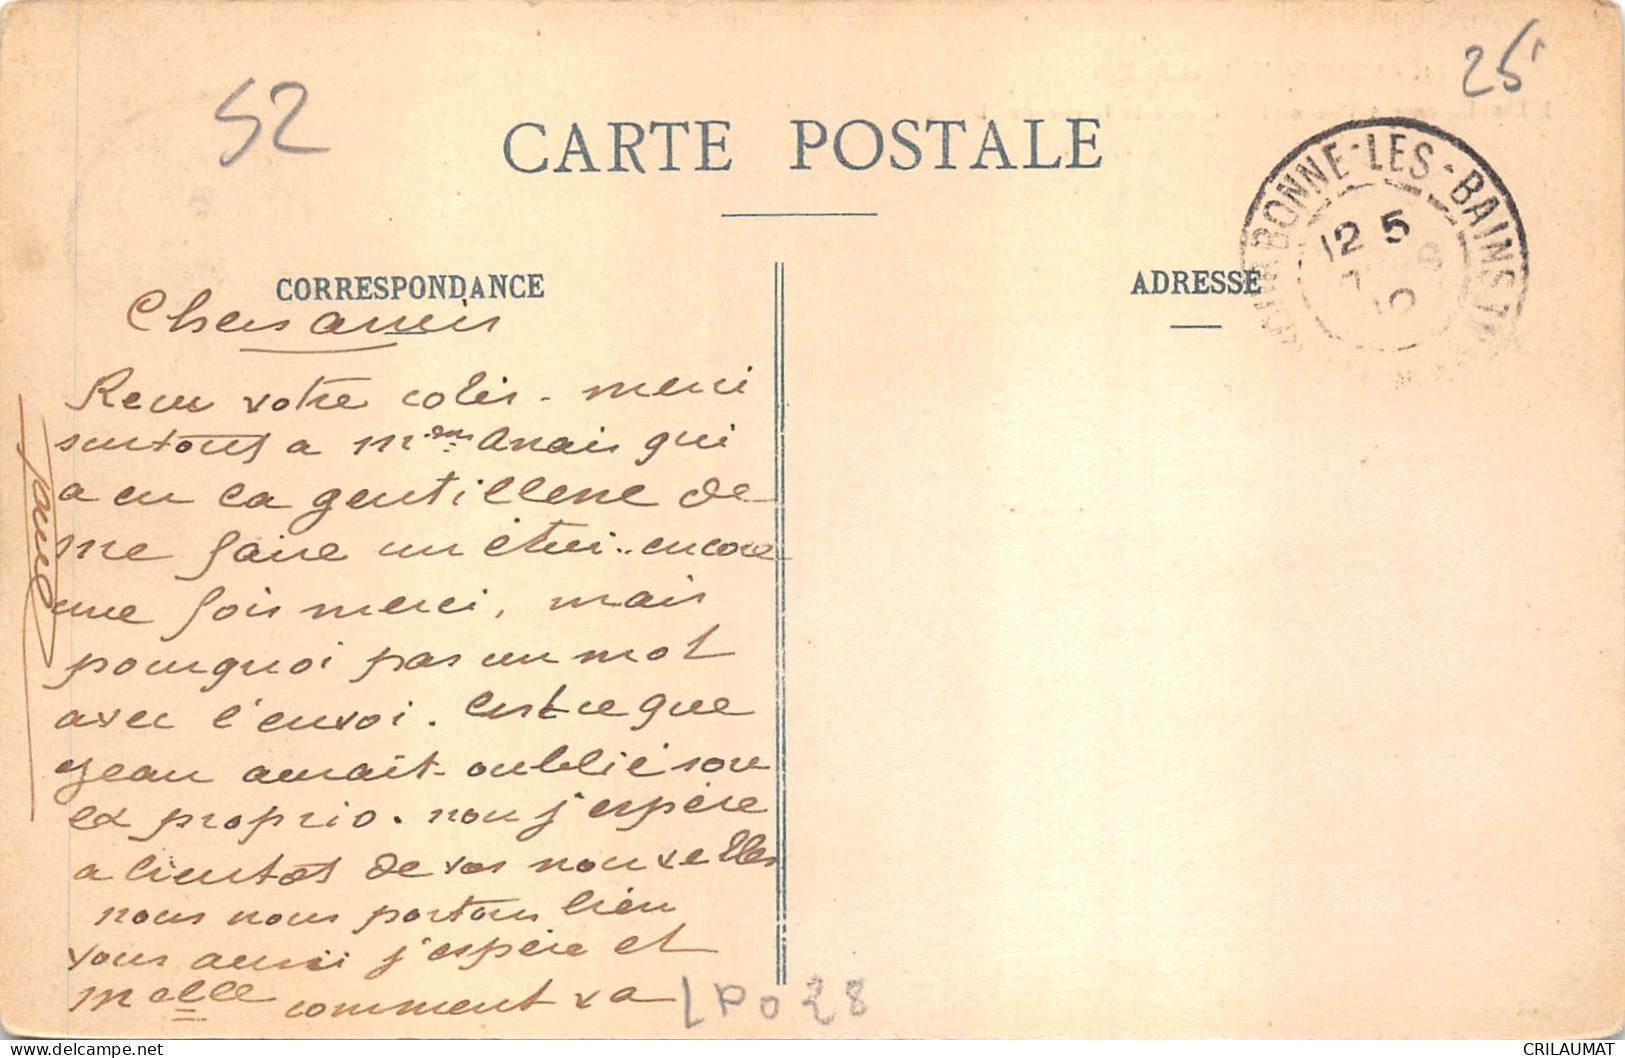 52
25
CARTE POSTALE
BONNE-LES-BAINS
12 5
CORRESPONDANCE
ADRESSE
Chers amis
Recu votre colis. merci
surtout a Mme Anais qui
a eu la gentillesse de
me faire un étui.. encore
une fois merci, mais
pourquoi pas un mot
avec l'envoi. Est ce que
Jean aurait oublié son
ex proprio. non j'espère
a bientôt de vos nouvelles
nous nous portons bien
vous aussi j'espère et
Melle comment va
LP028
CRILAUMAT